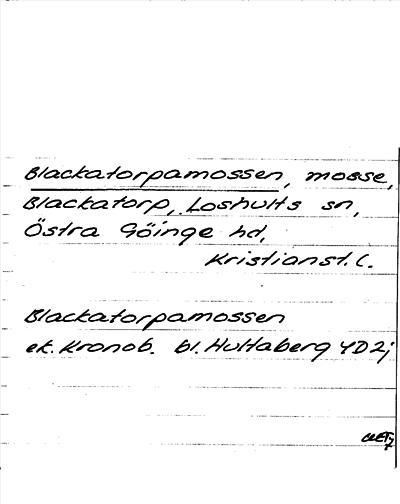 Blackatorpamossen, mosse,
Blackatorp, Loshults sn,
Östra Göinge hd,
Kristianst. l.
Blackatorpamossen
ek. Kronob. bl. Hultaberg 4D2j